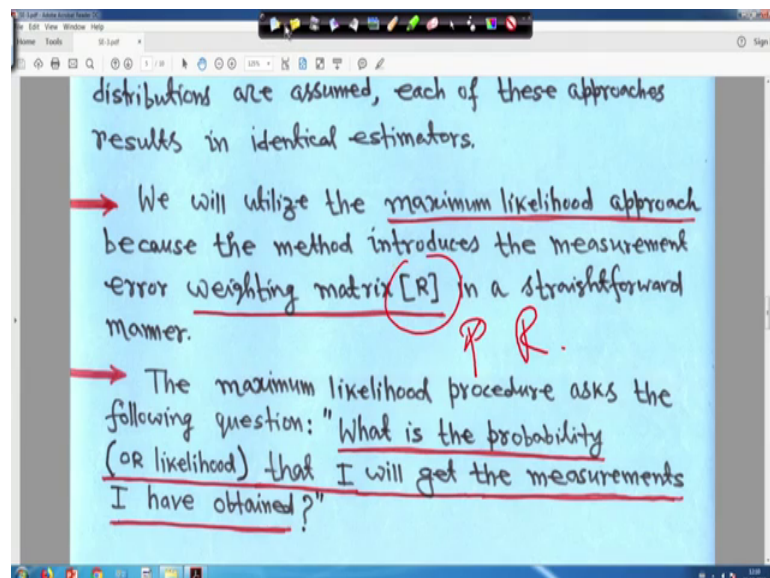 SE-3.pdf - Adobe Acrobat Reader DC
File Edit View Window Help
Home Tools SE-3.pdf × Sign
5 / 18 125%
distributions are assumed, each of these approaches
results in identical estimators.
We will utilize the maximum likelihood approach
because the method introduces the measurement
error weighting matrix [R] in a straightforward
manner.
P R.
The maximum likelihood procedure asks the
following question: "What is the probability
(OR likelihood) that I will get the measurements
I have obtained?"